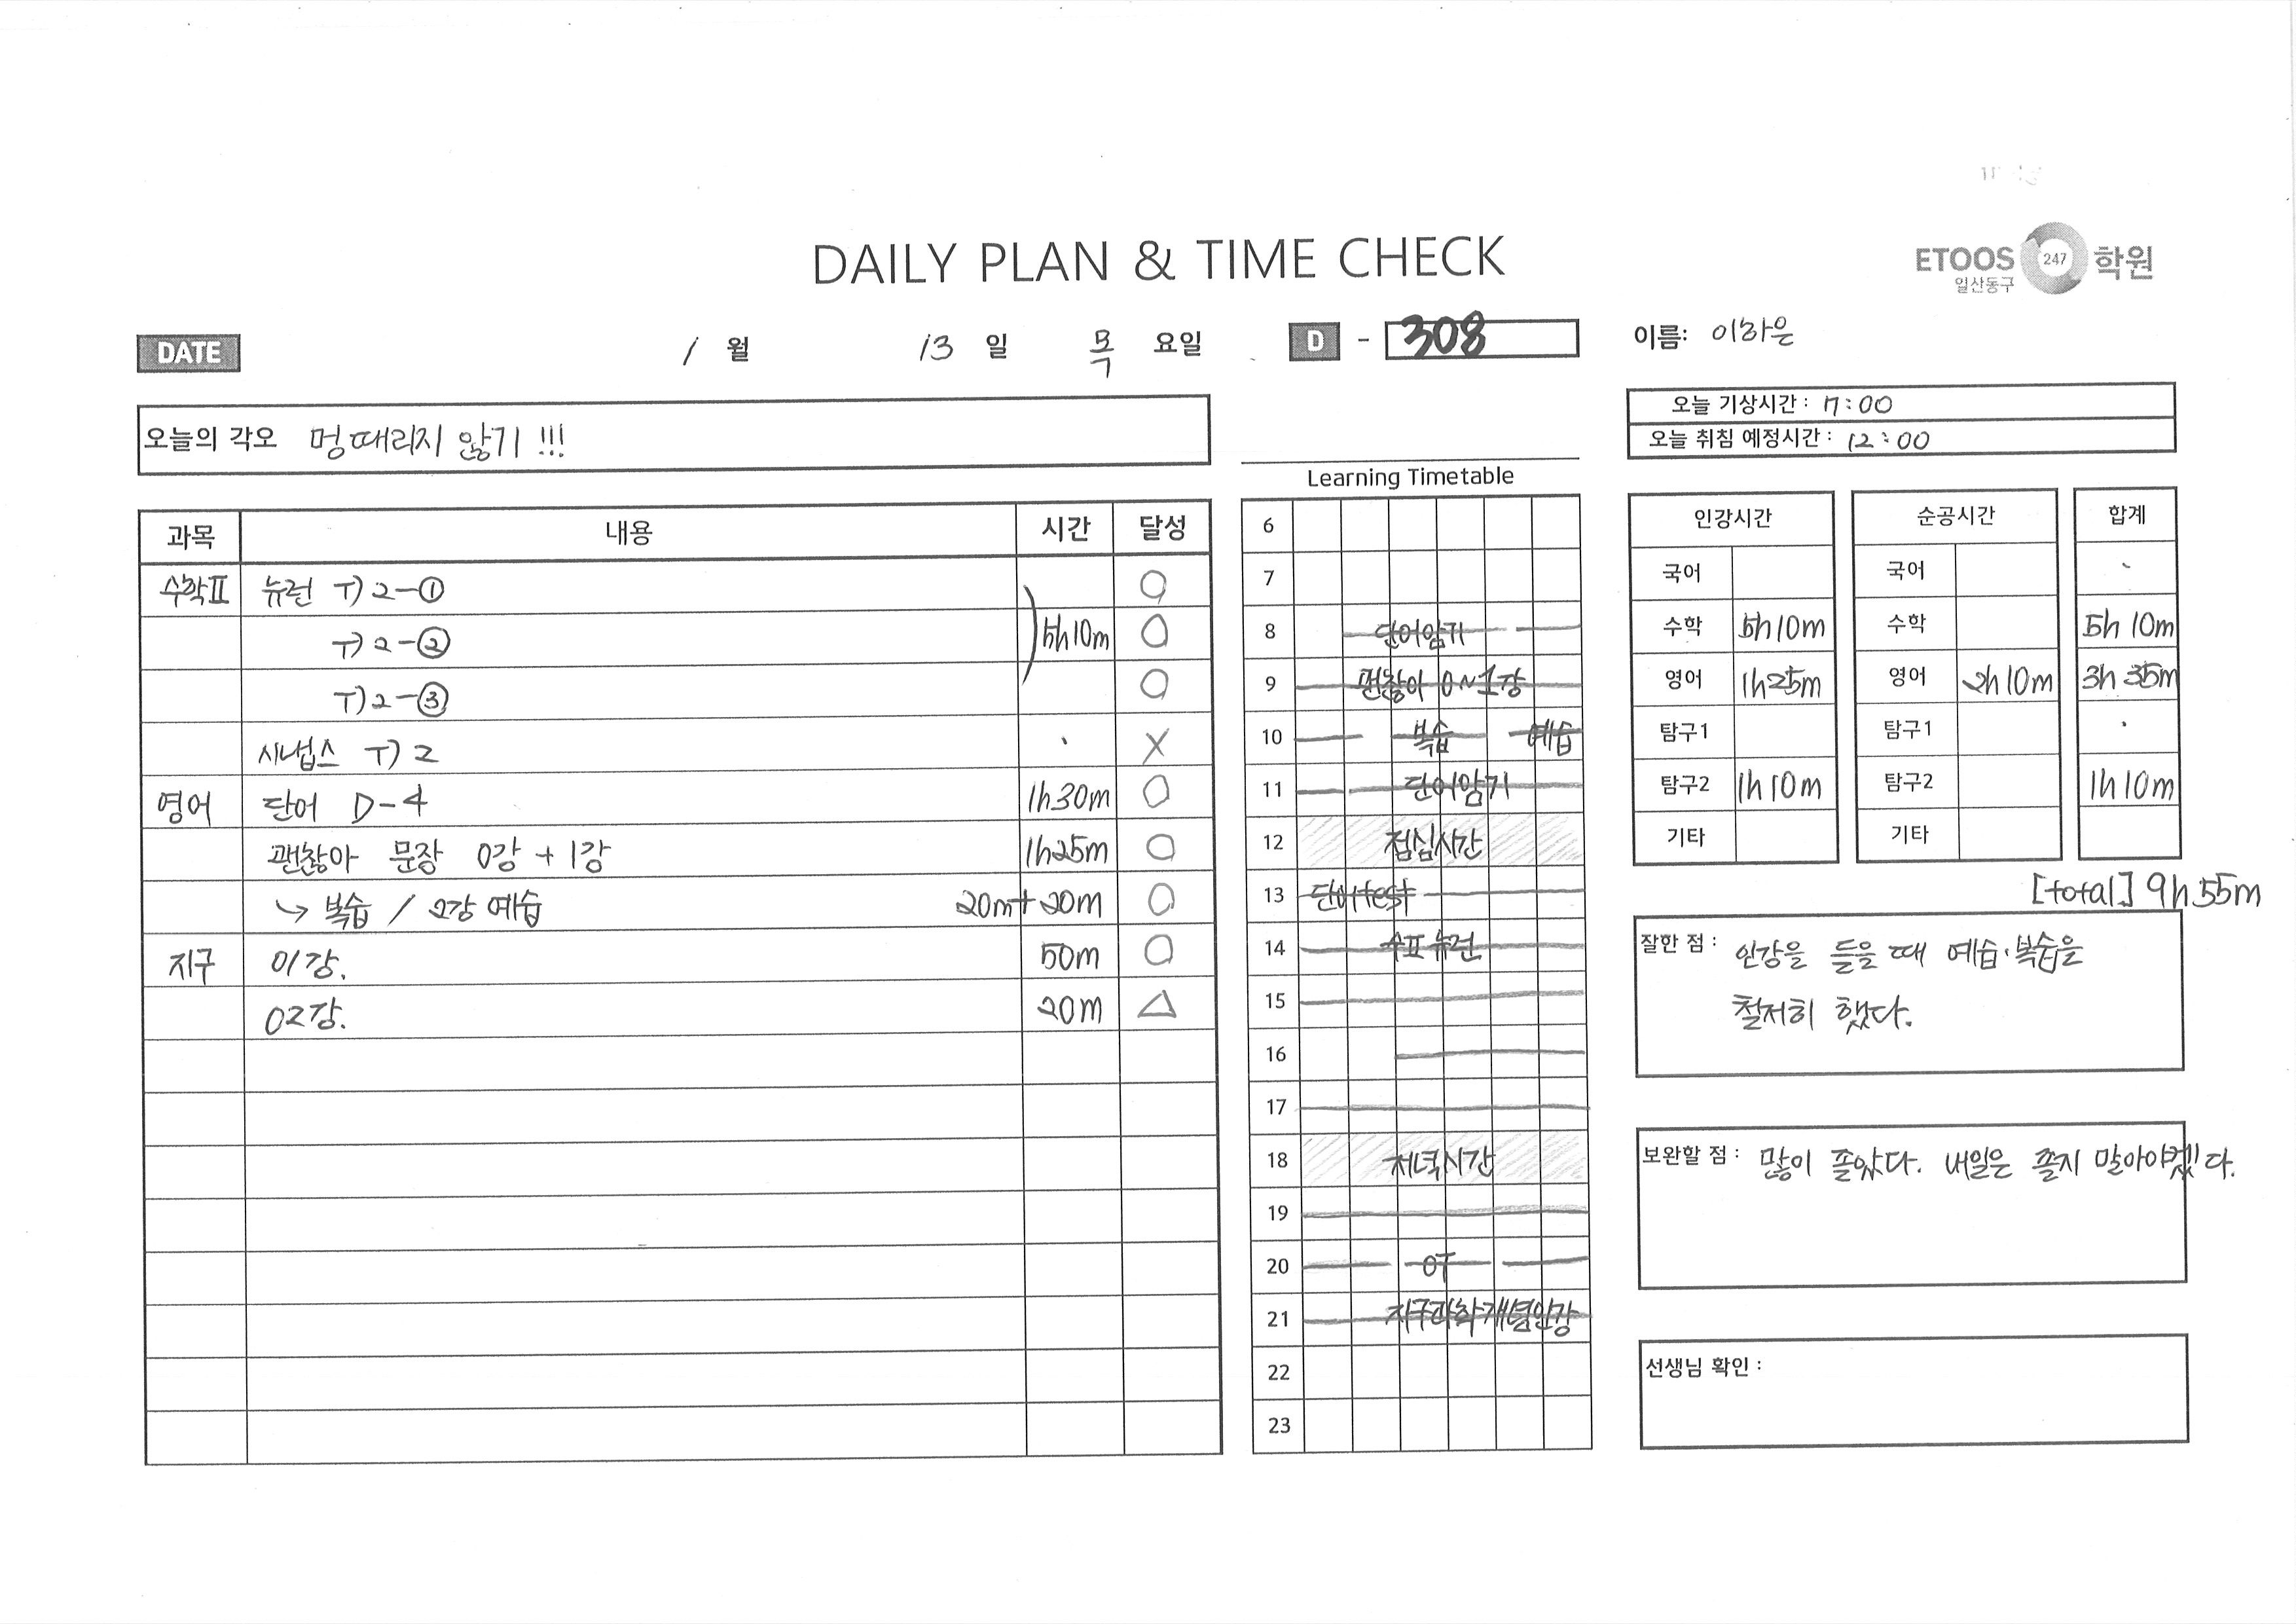 DAILY PLAN & TIME CHECK
ETOOS 247 학원
일산동구
DATE 1 월 13 일 목 요일 D - 308 이름: 이하은
오늘의 각오 멍때리지 않기 !!!
오늘 기상시간 : 7:00
오늘 취침 예정시간 : 12:00
과목 내용 시간 달성
수학II 뉴런 T) 2-① O
T) 2-② 5h 10m O
T) 2-③ O
시냅스 T) 2 X
영어 단어 D-4 1h 30m O
괜찮아 문장 0강 + 1강 1h 25m O
↳ 복습 / 2강 예습 20m + 20m O
지구 01강. 50m O
02강. 20m △
Learning Timetable
6
7
8 단어암기
9 괜찮아 0~1강
10 복습 예습
11 단어암기
12 점심시간
13 단어test
14 수II 뉴런
15
16
17
18 저녁시간
19
20 OT
21 지구과학개념인강
22
23
인강시간 순공시간 합계
국어 국어
수학 5h 10m 수학 5h 10m
영어 1h 25m 영어 2h 10m 3h 35m
탐구1 탐구1
탐구2 1h 10m 탐구2 1h 10m
기타 기타
[total] 9h 55m
잘한 점 : 인강을 들을 때 예습·복습을
철저히 했다.
보완할 점 : 많이 졸았다. 내일은 졸지 말아야겠다.
선생님 확인 :